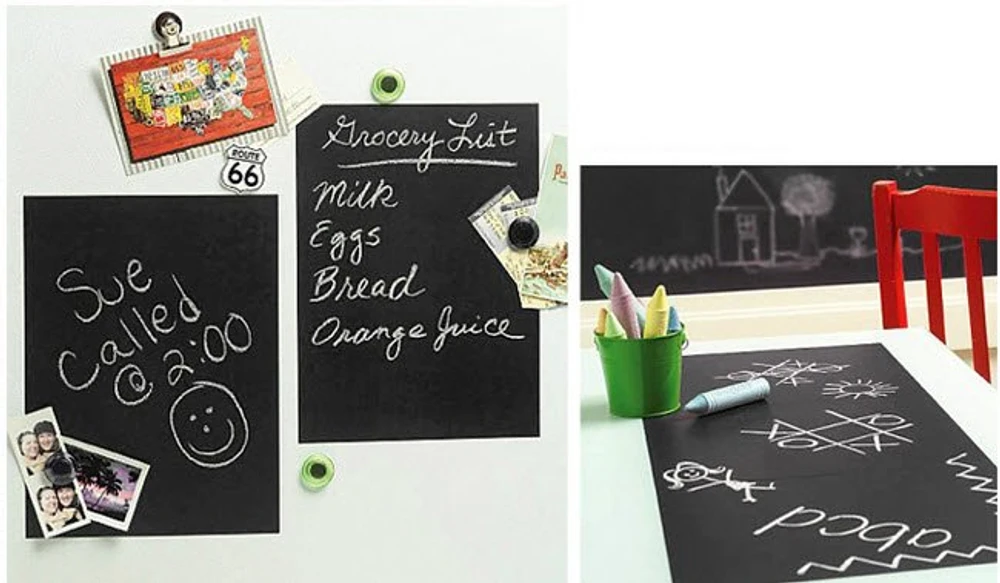 ROUTE
66
Grocery List
Milk
Eggs
Bread
Orange Juice
Sue
Called
@ 2:00
abcd